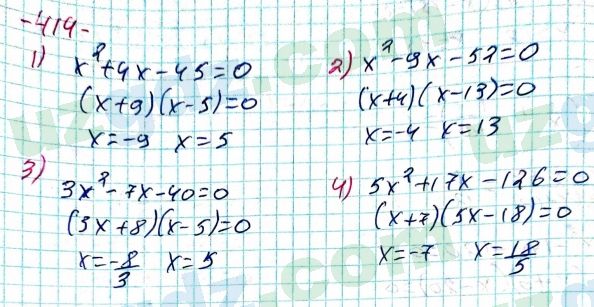 -414-
1) x²+4x-45=0
(x+9)(x-5)=0
x=-9 x=5
2) x²-9x-52=0
(x+4)(x-13)=0
x=-4 x=13
3) 3x²-7x-40=0
(3x+8)(x-5)=0
x=-8/3 x=5
4) 5x²+17x-126=0
(x+7)(5x-18)=0
x=-7 x=18/5